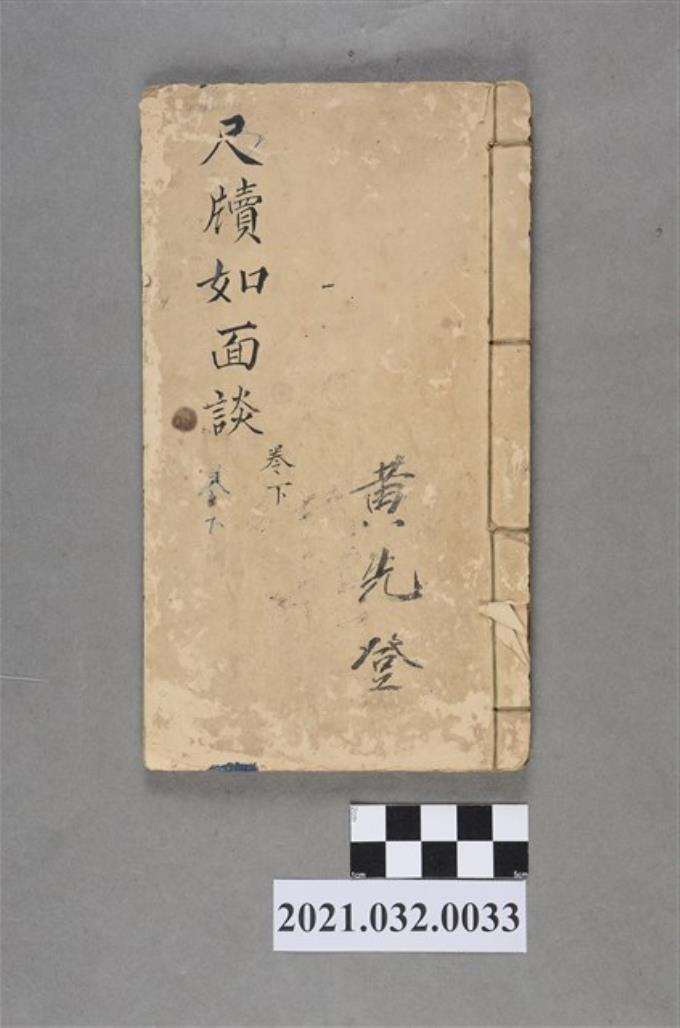 黄先登
卷下
尺牘如面談
卷下
2021.032.0033